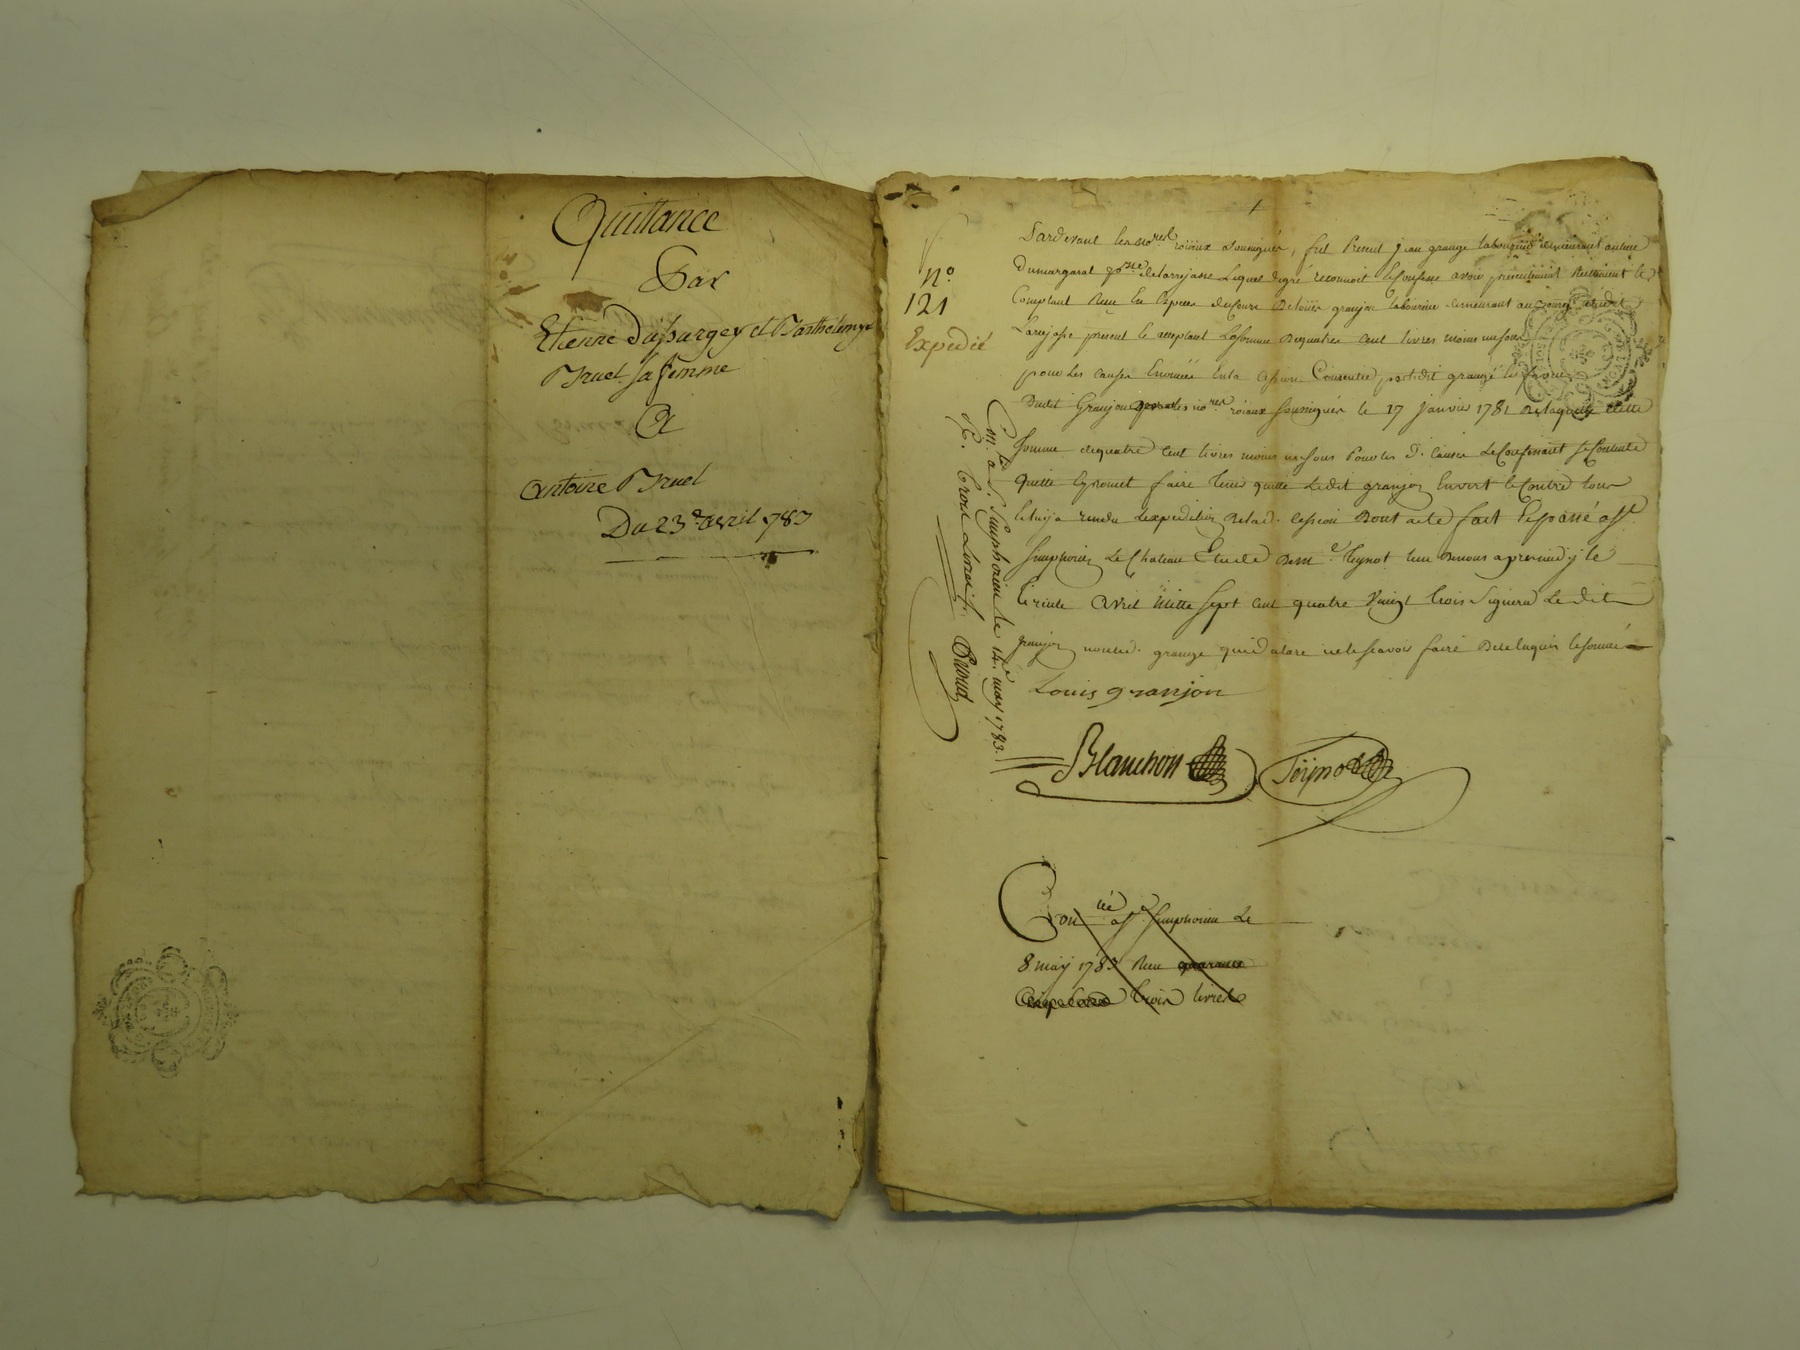 Quittance
Par
Etienne Dussurgey et Barthélemye
Bruel sa femme
A
Antoine Bruel
Du 23e avril 1783
n.°
121
Expedié
Pardevant les no.res roïaux soussignés, fut present jean grange laboureur demeurant au lieu
Dumargarat p.sse delarrajasse Lequel degré reconnoit et confesse avoir presentement reellement et
Comptant Reçu En Especes ducours De loüis granjon laboureur demeurant au bourg dudit
Larrajasse present et acceptant La somme dequatre cent livres moins un sous
pour les causes Enoncées En la cession Consentie par ledit grange En faveur
Dudit Granjon pardt les no.res roïaux soussignés le 17 janvier 1781 De laquelle ditte
somme dequatre cent livres moins un sous Pour les d. causes Le Confessant se Contente
quitte Et promet faire tenir quitte Ledit granjon Envers et Contre tous
et luy a remis L'expedition De lad. cession Dont acte fait Et passé a St
Simphorien Le Chateau Etude De me Teynot l'un De nous apres midy le
trente avril Mille sept cent quatre vingt trois Signera Le dit
granjon non led. grange qui a declaré ne le sçavoir faire De ce Enquis et sommé
Louis granjon
Blanchon Teÿnot
Con.lé a S. Simphorien le 14.e may 1783.
R. trois Livres Prout
Con.lé a St Simphorien Le
8 may 1783 Reçu quarante
trois livres